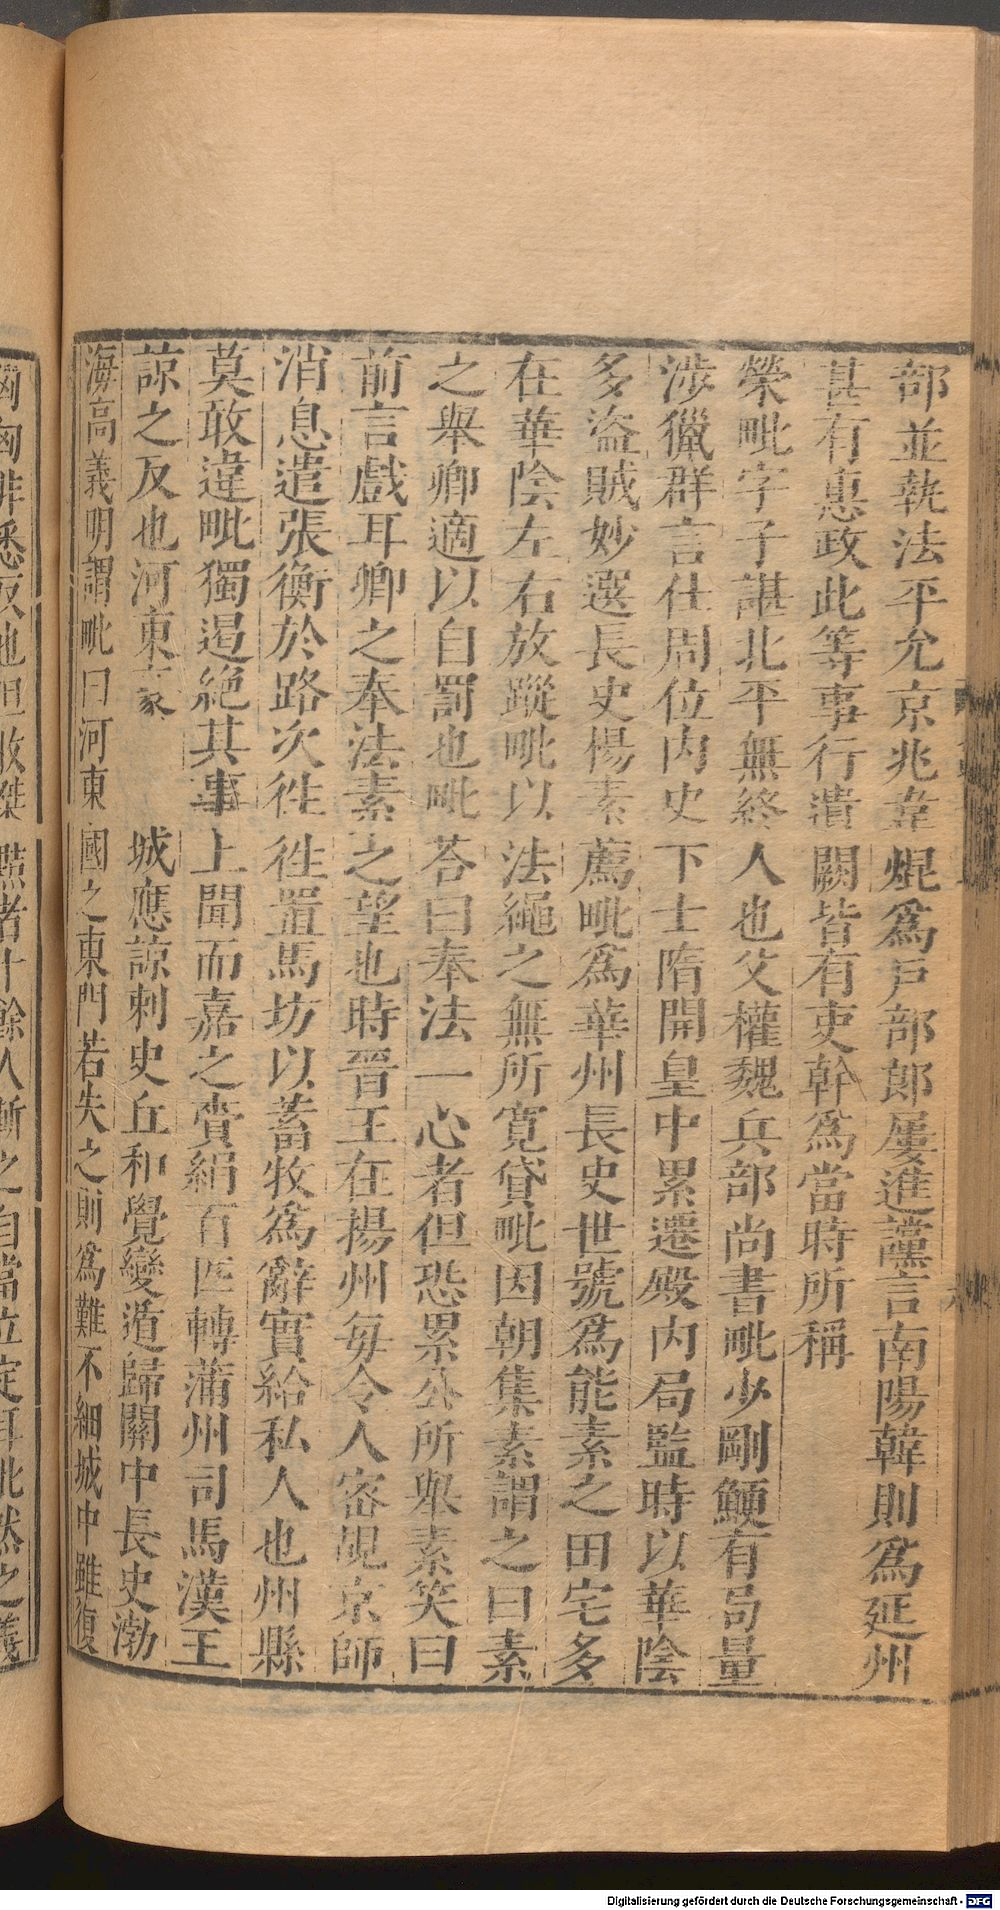 部並執法平允京兆韋焜爲戶部郎屢進讜言南陽韓則爲延州
甚有惠政此等事行遺闕皆有吏幹爲當時所稱
榮毗字子諶北平無終人也父權魏兵部尚書毗少剛鯁有局量
涉獵群言仕周位内史下士隋開皇中累遷殿内局監時以華陰
多盜賊妙選長史楊素薦毗爲華州長史世號爲能素之田宅多
在華陰左右放蹤毗以法繩之無所寛貸毗因朝集素謂之曰素
之舉卿適以自罰也毗荅曰奉法一心者但恐累公所舉素笑曰
前言戲耳卿之奉法素之望也時晉王在揚州每令人密覘京師
消息遣張衡於路次徃徃置馬坊以蓄牧爲辭實給私人也州縣
莫敢違毗獨遏絶其事上聞而嘉之賚絹百匹轉蒲州司馬漢王
諒之反也河東豪家城應諒刺史丘和覺變遁歸關中長史渤
海高義明謂毗曰河東國之東門若失之則爲難不細城中雖復
悉反也但收桀黠者十餘人斬之自當立定耳毗然之義
Digitalisierung gefördert durch die Deutsche Forschungsgemeinschaft - DFG